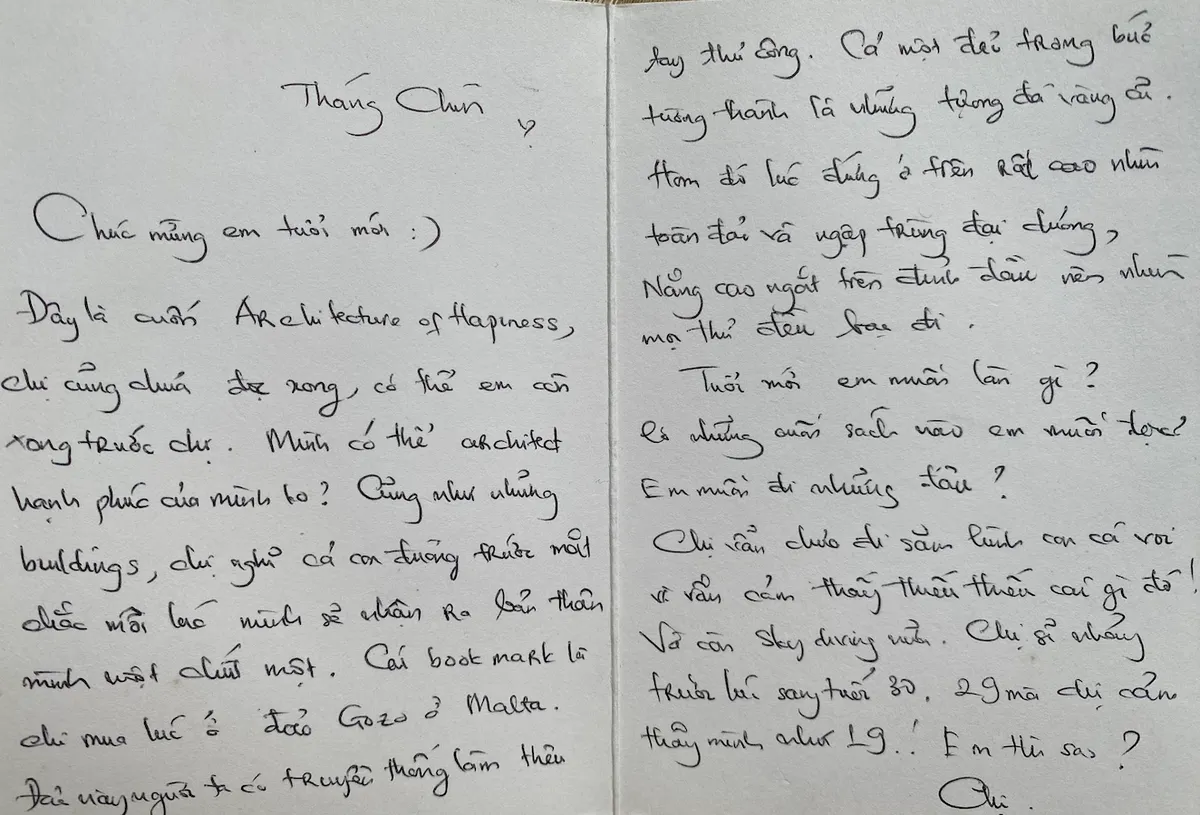 Tháng Chín
Chúc mừng em tuổi mới :)
Đây là cuốn Architecture of Hapiness,
chị cũng chưa đọc xong, có thể em còn
xong trước chị. Mình có thể architect
hạnh phúc của mình ko? Cũng như những
buildings, chị nghĩ cả con đường trước mắt
chắc mỗi lúc mình sẽ nhận ra bản thân
mình một chút một. Cái bookmark là
chị mua lúc ở đảo Gozo ở Malta.
Đảo này người ta có truyền thống làm thêu
tay thủ công. Cả một đảo trong bức
tường thành là những tượng đá vàng cũ.
Hôm đó lúc đứng ở trên rất cao nhìn
toàn đảo và ngập trùng đại dương,
Nắng cao ngất trên đỉnh đầu nên nhìn
mọi thứ đều bay đi.
Tuổi mới em muốn làm gì?
Có những cuốn sách nào em muốn đọc?
Em muốn đi những đâu?
Chị vẫn chưa đi săm hình con cá voi
vì vẫn cảm thấy thiếu thiếu cái gì đó!
Và còn Sky diving nữa. Chị sẽ nhảy
trước lúc sang tuổi 30. 29 mà chị cảm
thấy mình như 19.! Em thì sao?
Chị.